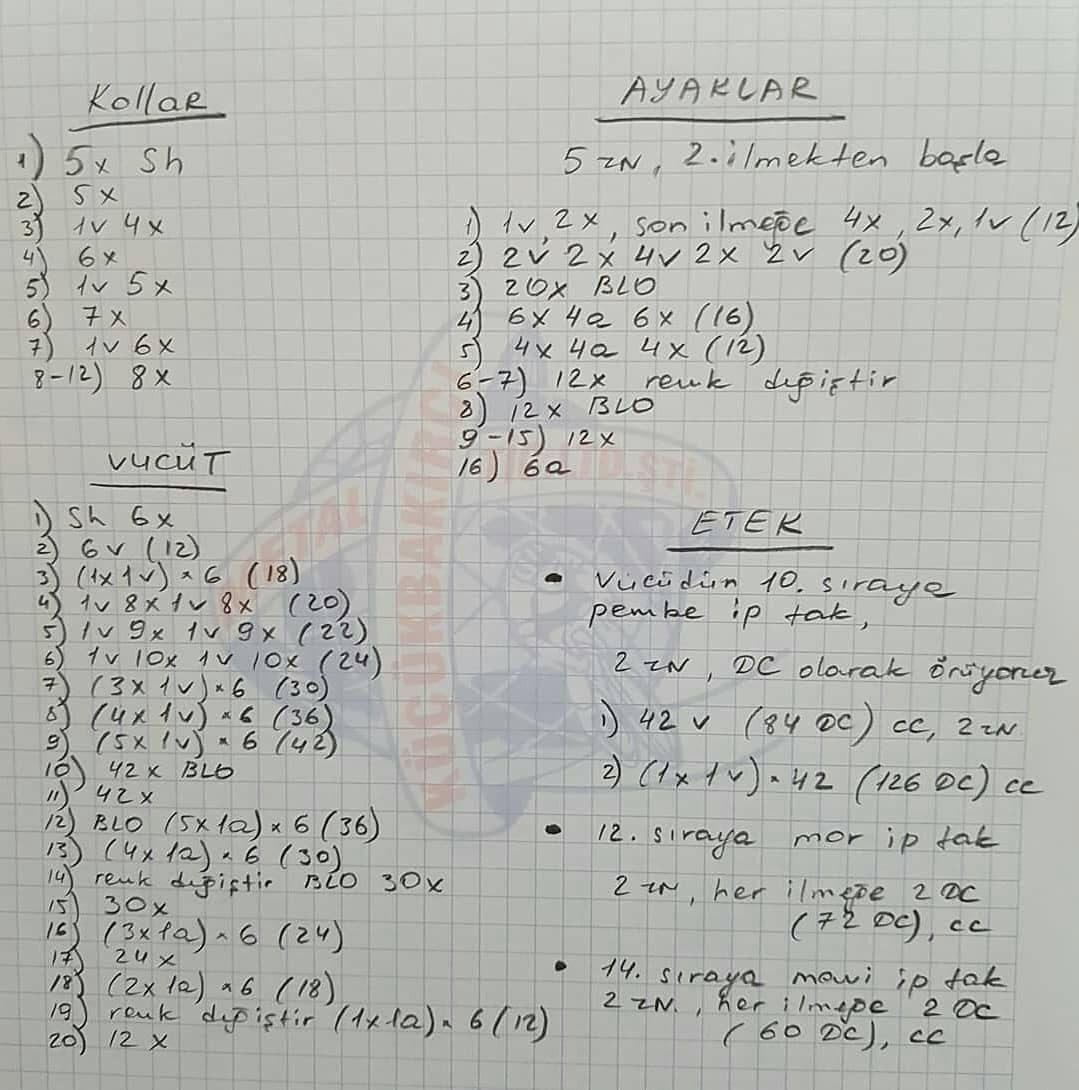 Kollar
1) 5x Sh
2) 5x
3) 1v 4x
4) 6x
5) 1v 5x
6) 7x
7) 1v 6x
8-12) 8x
VÜCÜT
1) Sh 6x
2) 6v (12)
3) (1x 1v) × 6 (18)
4) 1v 8x 1v 8x (20)
5) 1v 9x 1v 9x (22)
6) 1v 10x 1v 10x (24)
7) (3x 1v) × 6 (30)
8) (4x 1v) × 6 (36)
9) (5x 1v) × 6 (42)
10) 42x BLO
11) 42x
12) BLO (5x 1a) × 6 (36)
13) (4x 1a) × 6 (30)
14) renk değiştir BLO 30x
15) 30x
16) (3x 1a) × 6 (24)
17) 24x
18) (2x 1a) × 6 (18)
19) renk değiştir (1x 1a) × 6 (12)
20) 12x
AYAKLAR
5 zN, 2. ilmekten başla
1) 1v, 2x, son ilmeğe 4x, 2x, 1v (12)
2) 2v 2x 4v 2x 2v (20)
3) 20x BLO
4) 6x 4a 6x (16)
5) 4x 4a 4x (12)
6-7) 12x renk değiştir
8) 12x BLO
9-15) 12x
16) 6a
ETEK
• Vücüdün 10. sıraya
pembe ip tak,
2 zN, DC olarak örüyoruz
1) 42 v (84 DC) cc, 2 zN
2) (1x 1v) × 42 (126 DC) cc
• 12. sıraya mor ip tak
2 zN, her ilmeğe 2 DC
(72 DC), cc
• 14. sıraya mavi ip tak
2 zN., her ilmeğe 2 DC
(60 DC), cc
KÜÇÜKBAKIRCI
METAL
LTD.ŞTİ.